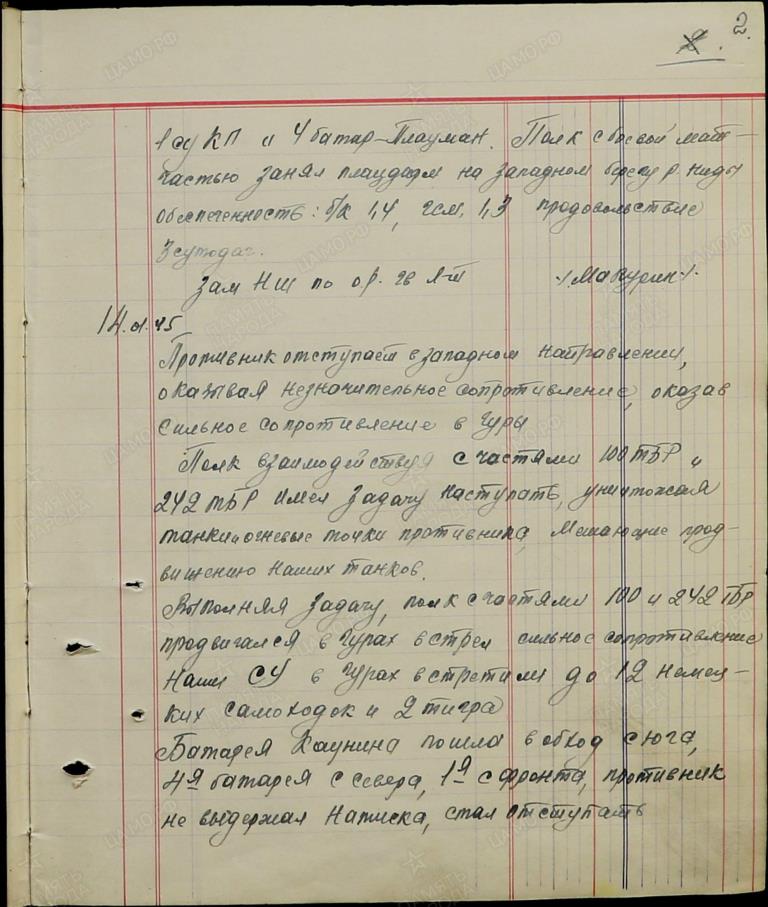 2.
1 су КП и 4 батар – Плауман. Полк с боевой мат–
частью занял плацдарм на западном берегу р. Ниды
обеспеченность: б/к 1,4, гсм. 1,3 продовольствие
3 сутодач.
Зам НШ по о.р. гв л-т /Макурин/.
14.01.45
Противник отступает в западном направлении,
оказывая незначительное сопротивление, оказав
сильное сопротивление в Гуры
Полк взаимодействуя с частями 100 ТБР и
242 ТБР имел задачу наступать, уничтожая
танки и огневые точки противника, мешающие прод–
вижению наших танков.
Выполняя задачу, полк с частями 100 и 242 ТБР
продвигался в Гурах встрел сильное сопротивление
Наши СУ в Гурах встретили до 12 немец–
ких самоходок и 2 тигра
Батарея Каунина пошла в обход с юга,
4я батарея с севера, 1я с фронта, противник
не выдержал натиска, стал отступать